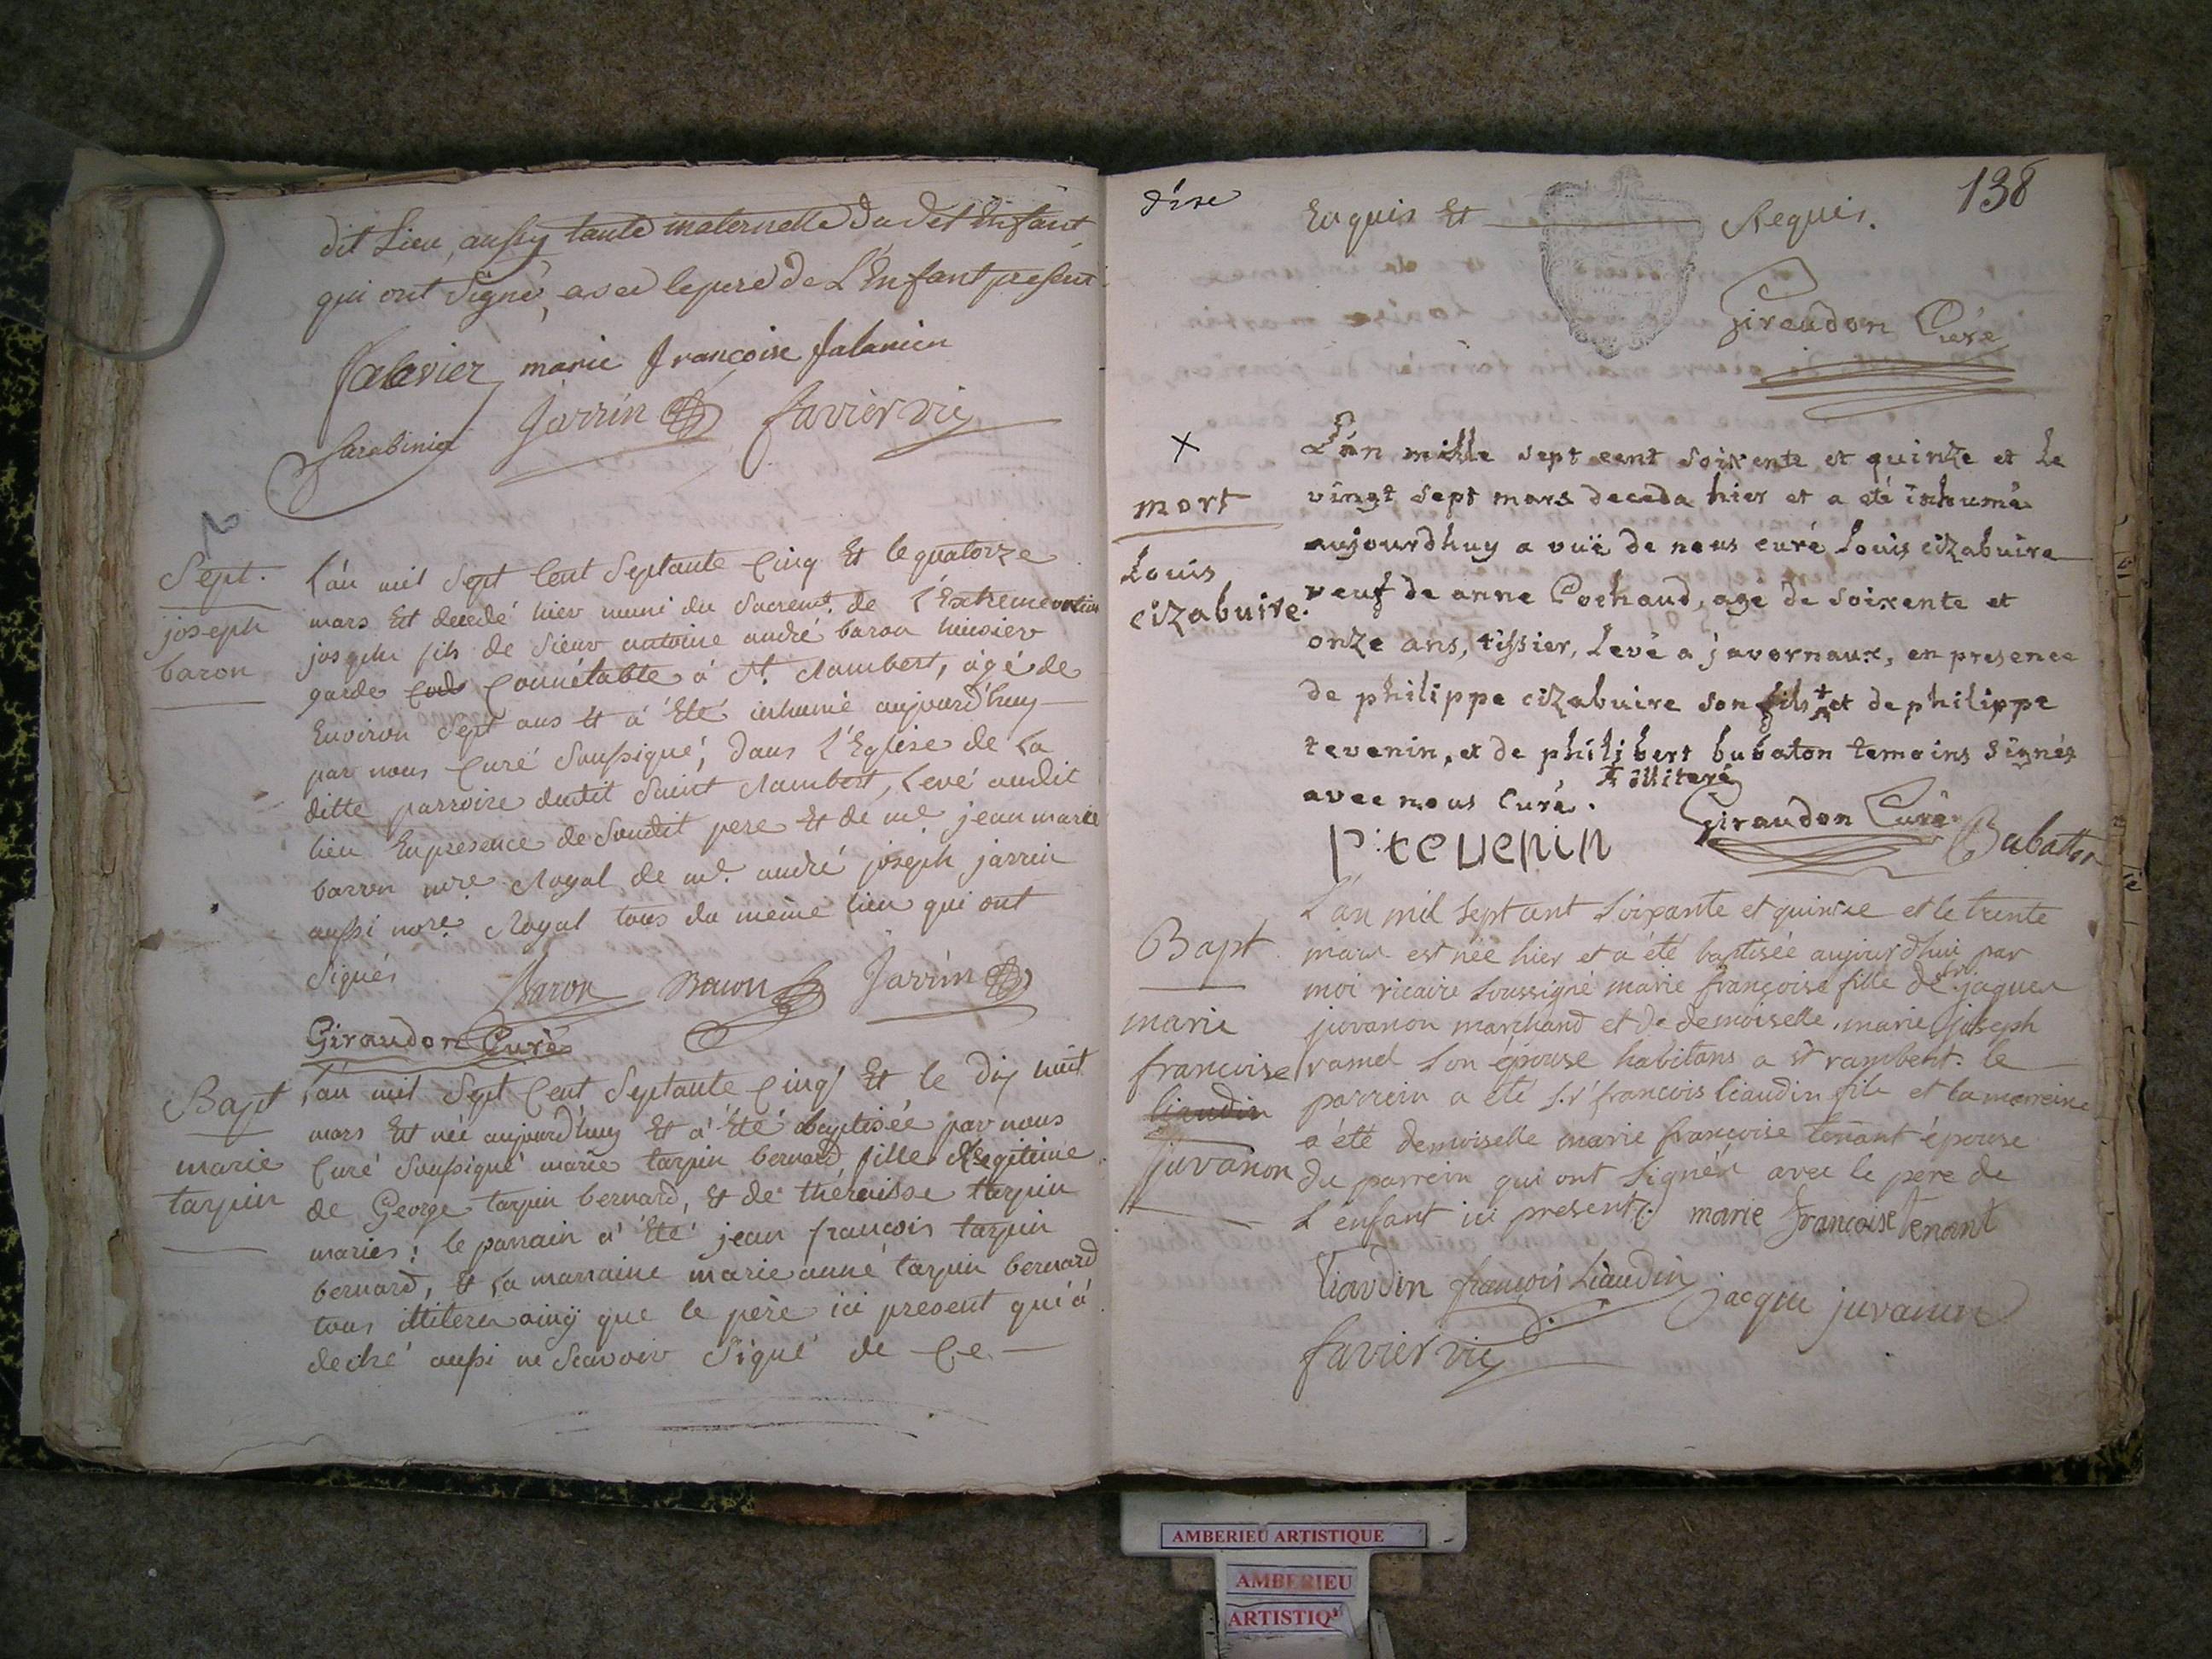 dit Lieu, aussy tante maternelle dudet Enfant
qui ont Signé, avec le pere de L'Enfant present
falavier marie francoise falavier
Sarabinia Jarrin favier vic
Sept.
joseph
baron
L'an mil Sept Cent Septante Cinq Et le quatorze
mars Est decedé hier muni du Sacremt. de l'Extremeontion
joseph fils de Sieur antoine andré baron huissier
garde Connétable à St. Rambert, âgé de
Environ Sept ans Et a Eté inhumé aujourd'huy
par nous Curé Soussigné, dans l'Eglise de La
ditte parroisse dudit Saint Rambert, Levé audit
lieu En presence de Soudit pere Et de me. jean marie
barron nore. Royal de me. andré joseph jarrin
aussi nore. Royal tous du même lieu qui ont
Signés
Baron Baron Jarrin
Giraudon Curé
Bapt
marie
tarpin
L'an mil Sept Cent Septante Cinq Et le dix huit
mars Est née aujourd'huy Et a Eté baptisée par nous
Curé Soussigné marie tarpin bernard, fille Legitime
de George tarpin bernard, Et de theraisse tarpin
mariés; le parrain a Eté jean françois tarpin
bernard, Et La marraine marie anne tarpin bernard
tous illiteres ainsy que le père ici present qui a
declré aussi ne Scavoir Signé de Ce
138
Enquis Et Requis.
Giraudon Curé
x
mort
Louis
cizabuire.
L'an mille sept cent soixente et quinze et le
vingt sept mars deceda hier et a eté inhumé
aujourdhuy a vuë de nous curé Louis cizabuire
veuf de anne Cochaud, age de soixente et
onze ans, tissier, Levé a javornaux, en presence
de philippe cizabuire son fils + et de philippe
tevenin, et de philibert bubaton temoins signés
+ illiteré
avec nous Curé.
P: tevenin Giraudon Curé Babatton
Bapt
marie
francoise
liaudin
juvanon
L'an mil sept cent soixante et quinze et le trente
mars est née hier et a été baptisée aujourd'hui par
moi vicaire soussigné marie françoise fille de sr. jaques
juvanon marchand et de demoiselle marie joseph
ramel son épouse habitans a st rambert. le
parrein a été s.r françois liaudin fils et la marreine
a été demoiselle marie françoise tenant épouse
du parrein qui ont signés avec le pere de
L'enfant ici present. marie françoise Tenant
liaudin françois Liaudin jacque juvanon
favier vic
AMBERIEU ARTISTIQUE
AMBERIEU
ARTISTIQ